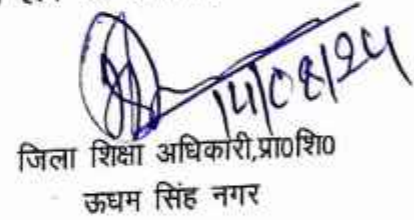 14/08/24
जिला शिक्षा अधिकारी,प्रा०शि०
ऊधम सिंह नगर